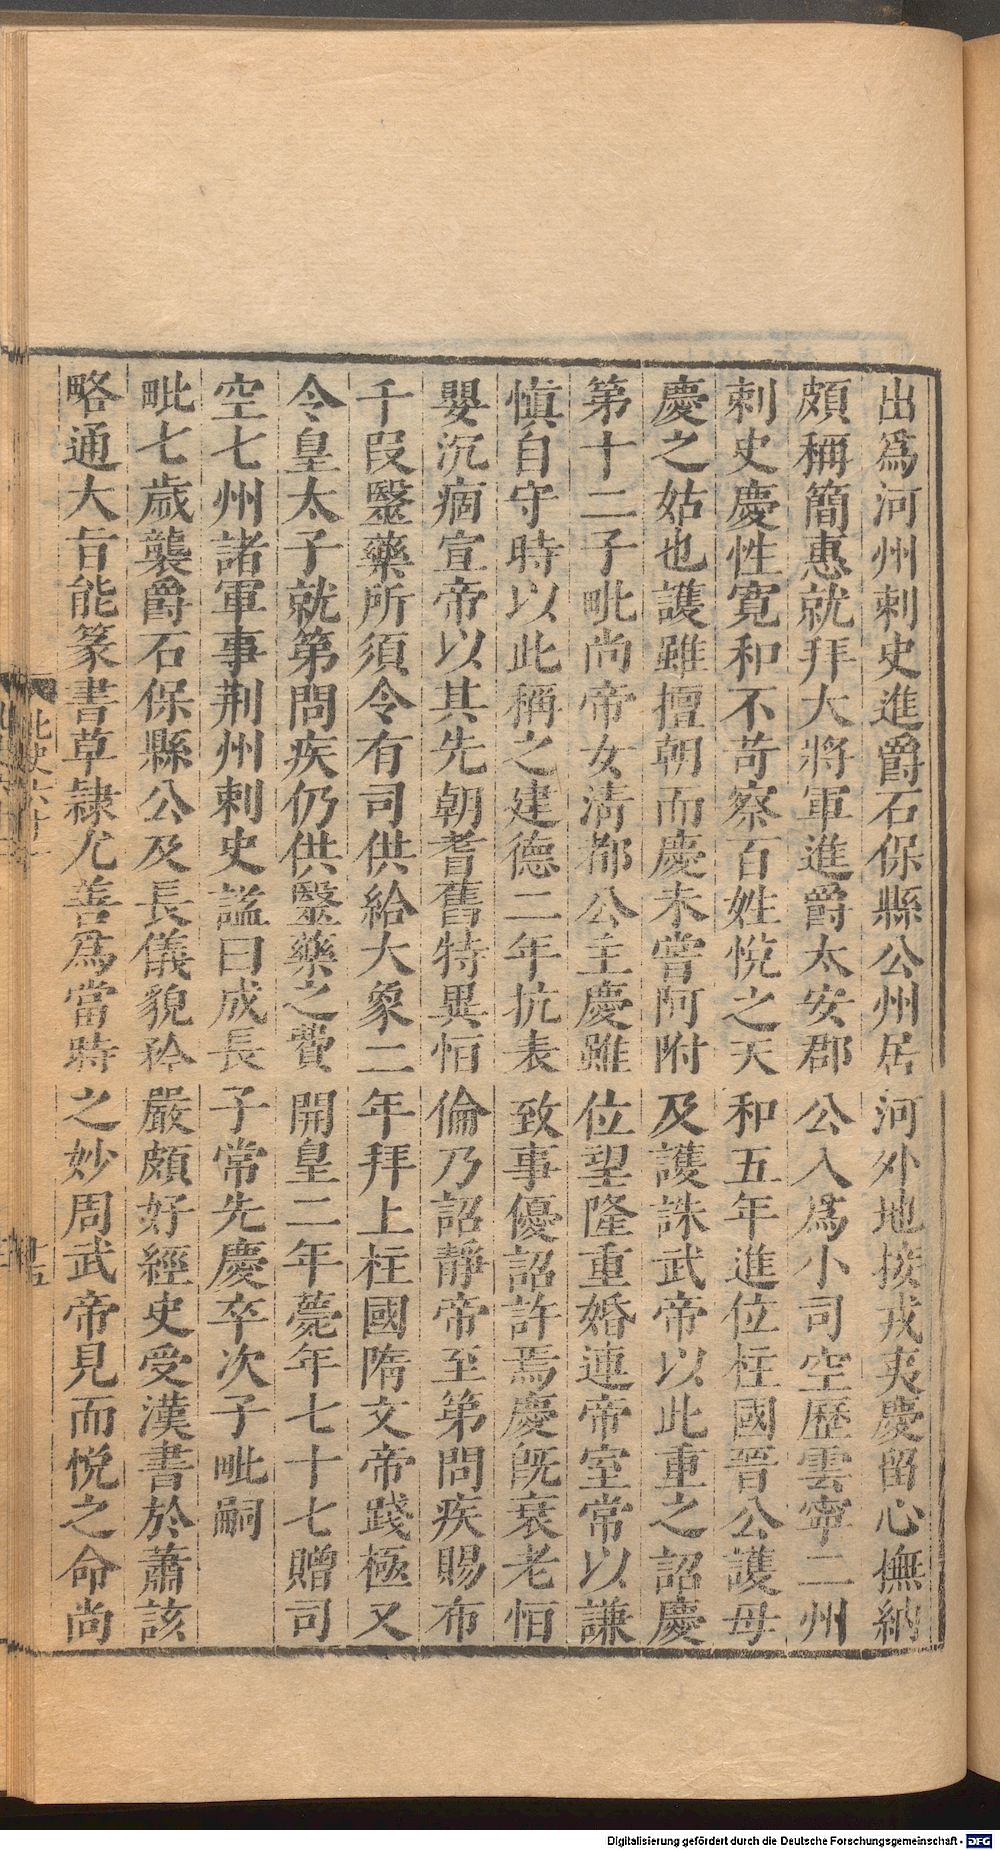 出爲河州刺史進爵石保縣公州居河外地接戎夷慶留心撫納
頗稱簡惠就拜大將軍進爵太安郡公入爲小司空歷雲寧二州
刺史慶性寛和不苛察百姓悅之天和五年進位柱國晉公護母
慶之姑也護雖擅朝而慶未嘗阿附及護誅武帝以此重之詔慶
第十二子毗尚帝女淸都公主慶雖位望隆重婚連帝室常以謙
愼自守時以此稱之建德二年抗表致事優詔許焉慶旣衰老恒
嬰沉痼宣帝以其先朝耆舊特異恒倫乃詔靜帝至第問疾賜布
千段毉藥所須令有司供給大象二年拜上柱國隋文帝踐極又
令皇太子就第問疾仍供毉藥之費開皇二年薨年七十七贈司
空七州諸軍事荆州刺史謚曰成長子常先慶卒次子毗嗣
毗七歲襲爵石保縣公及長儀貌矜嚴頗好經史受漢書於蕭該
略通大旨能篆書草隷尤善爲當時之妙周武帝見而悅之命尚
北史六十一
Digitalisierung gefördert durch die Deutsche Forschungsgemeinschaft - DFG